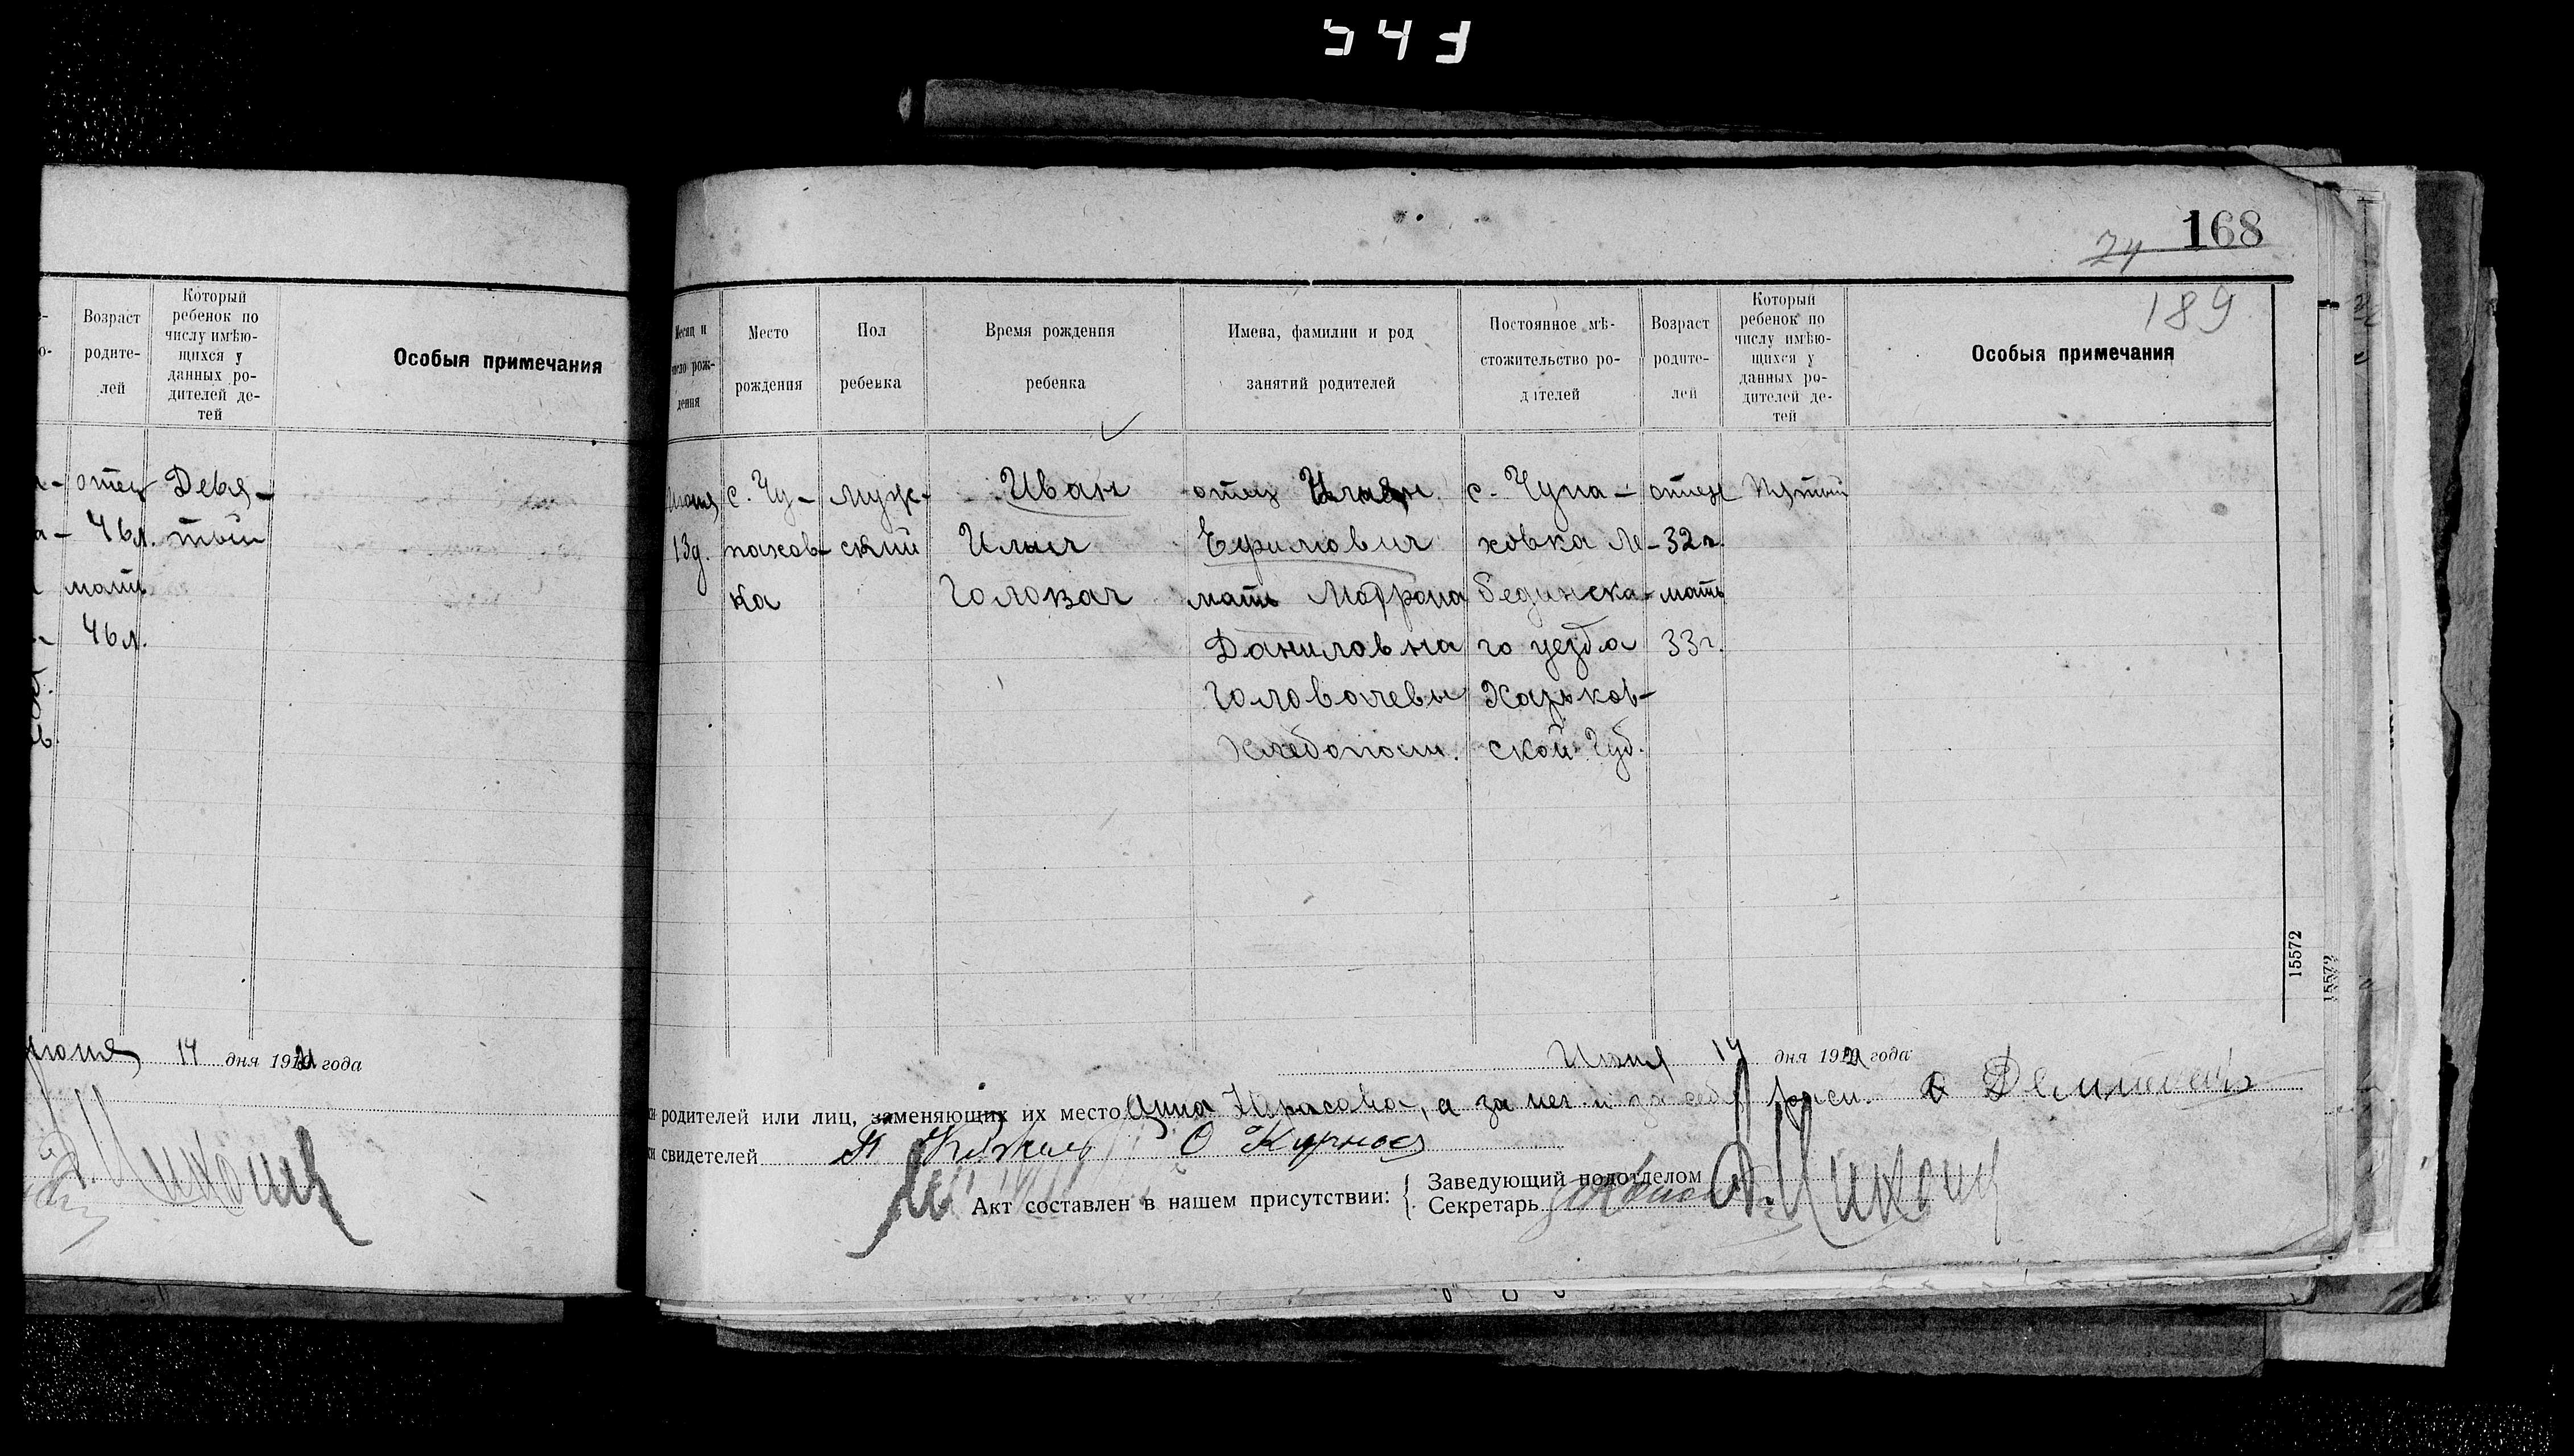 547
е-
о-
Возраст
родите-
лей
Который
ребенок по
числу имѣю-
щихся у
данных ро-
дителей де-
тей
Особыя примечания
отец
46л.
мать
46л.
Девя-
тый
июня 14 дня 1921 года
168
24
189
Месяц и
число рож-
дения
Место
рождения
Пол
ребенка
Время рождения
ребенка
Имена, фамилии и род
занятий родителей
Постоянное мѣ-
стожительство ро-
дителей
Возраст
родите-
лей
Который
ребенок по
числу имѣю-
щихся у
данных ро-
дителей де-
тей
Особыя примечания
Июня
13д.
с. Чу-
пахов-
ка
муж-
ский
Иван
Ильич
Головач
отец
Ефимович
мать Мотрона
Даниловна
Головачевы
Хлебопаш.
с. Чупа-
ховка Ле-
бединска-
го уезда
Харьков-
ской Губ.
отец
32г.
мать
33г.
Пятый
Июня 14 дня 192 года
родителей или лиц, заменяющих их место Анна а за нея и за себя
свидетелей
Акт составлен в нашем присутствии:
Заведующий подотделом
Секретарь
15572
15572